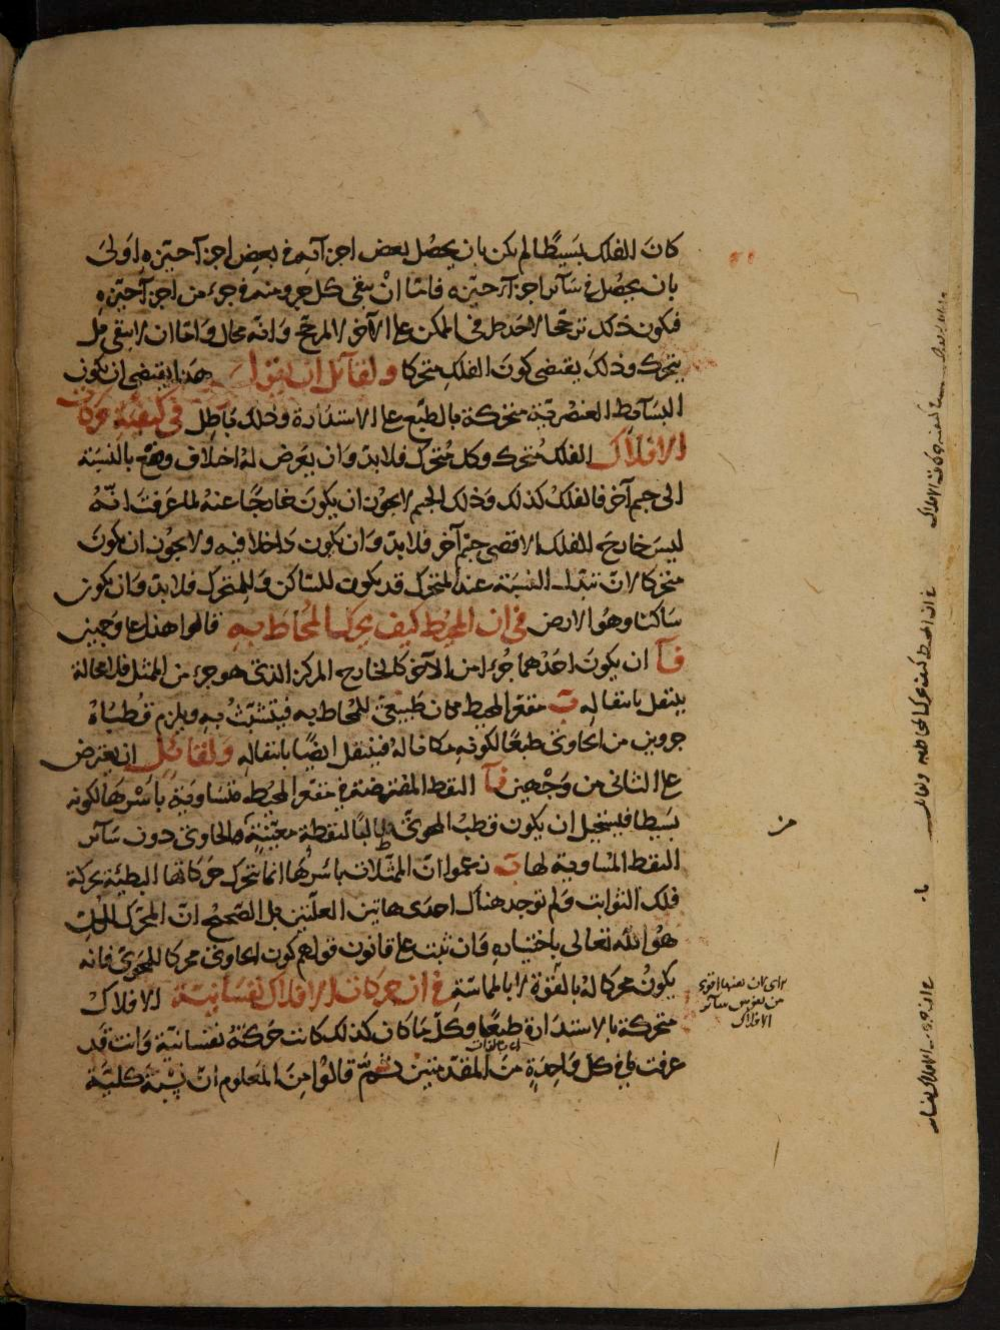 كان الفلك بسيطا لم يكن بان يحصل بعض اجزائه في بعض اجزاء حيزه اولى
بان يحصل في سائر اجزاء حيزه فاما ان يبقى كل جزء منه في جزء من اجزاء حيزه
فيكون ذلك ترجحا لاحد طرفي الممكن على الآخر لا لمرجح وانه محال واما ان لا يبقى بل
يتحرك وذلك يقتضي كون الفلك متحركا ولقائل ان يقول هذا يقتضي ان يكون
البسائط العنصرية متحركة بالطبع على الاستدارة وذلك باطل في كيفية حركات
الافلاك الفلك متحرك وكل متحرك فلا بد وان يعرض له اختلاف وضع بالنسبة
الى جسم آخر فالفلك كذلك وذلك الجسم لا يجوز ان يكون خارجا عنه لما عرفت انه
ليس خارج الفلك الاقصى جسم آخر فلا بد وان يكون داخلا فيه ولا يجوز ان يكون
متحركا لان تبدل النسبة عند المتحرك قد يكون للساكن وللمتحرك فلا بد وان يكون
ساكنا وهو الارض في ان المحيط كيف يحرك المحاط به قالوا هذا على وجهين
آ ان يكون احدهما جزءا من الآخر كالخارج المركز الذي هو جزء من الممثل فلا محالة
ينتقل بانتقاله ب مقعر المحيط مكان طبيعي للمحاط به فيتشبث به ويلزم قطباه
جزوين من الحاوي طبعا لكونه مكانا له فينتقل ايضا بانتقاله ولقائل ان يعترض
على الثاني من وجهين آ النقط المفترضة في مقعر المحيط متساوية باسرها لكونه
بسيطا فيستحيل ان يكون قطب المحوي طالبا لنقطة معينة من الحاوي دون سائر
النقط المساوية لها ب زعموا ان الممثلات باسرها انما تتحرك حركاتها البطيئة بحركة
فلك الثوابت ولم توجد هناك احدى هاتين العلتين بل الصحيح ان المحرك للكل
هو الله تعالى باختياره وان ثبت على قانون قولهم كون الحاوي محركا للمحوي فانه
يكون محركا له بالقوة لا بالمماسة في ان حركات الافلاك نفسانية الافلاك
متحركة بالاستدارة طبعا وكل ما كان كذلك كانت حركته نفسانية وانت قد
عرفت في كل واحدة من المقدمتين ثم قالوا من المعلوم ان نسبة كلية
اى ان نفسها اقوى
من نفوس سائر
الافلاك
كيفية حركات الافلاك
في ان المحيط كيف يحرك المحاط به ولقائل
في ان حركات الافلاك نفسانية